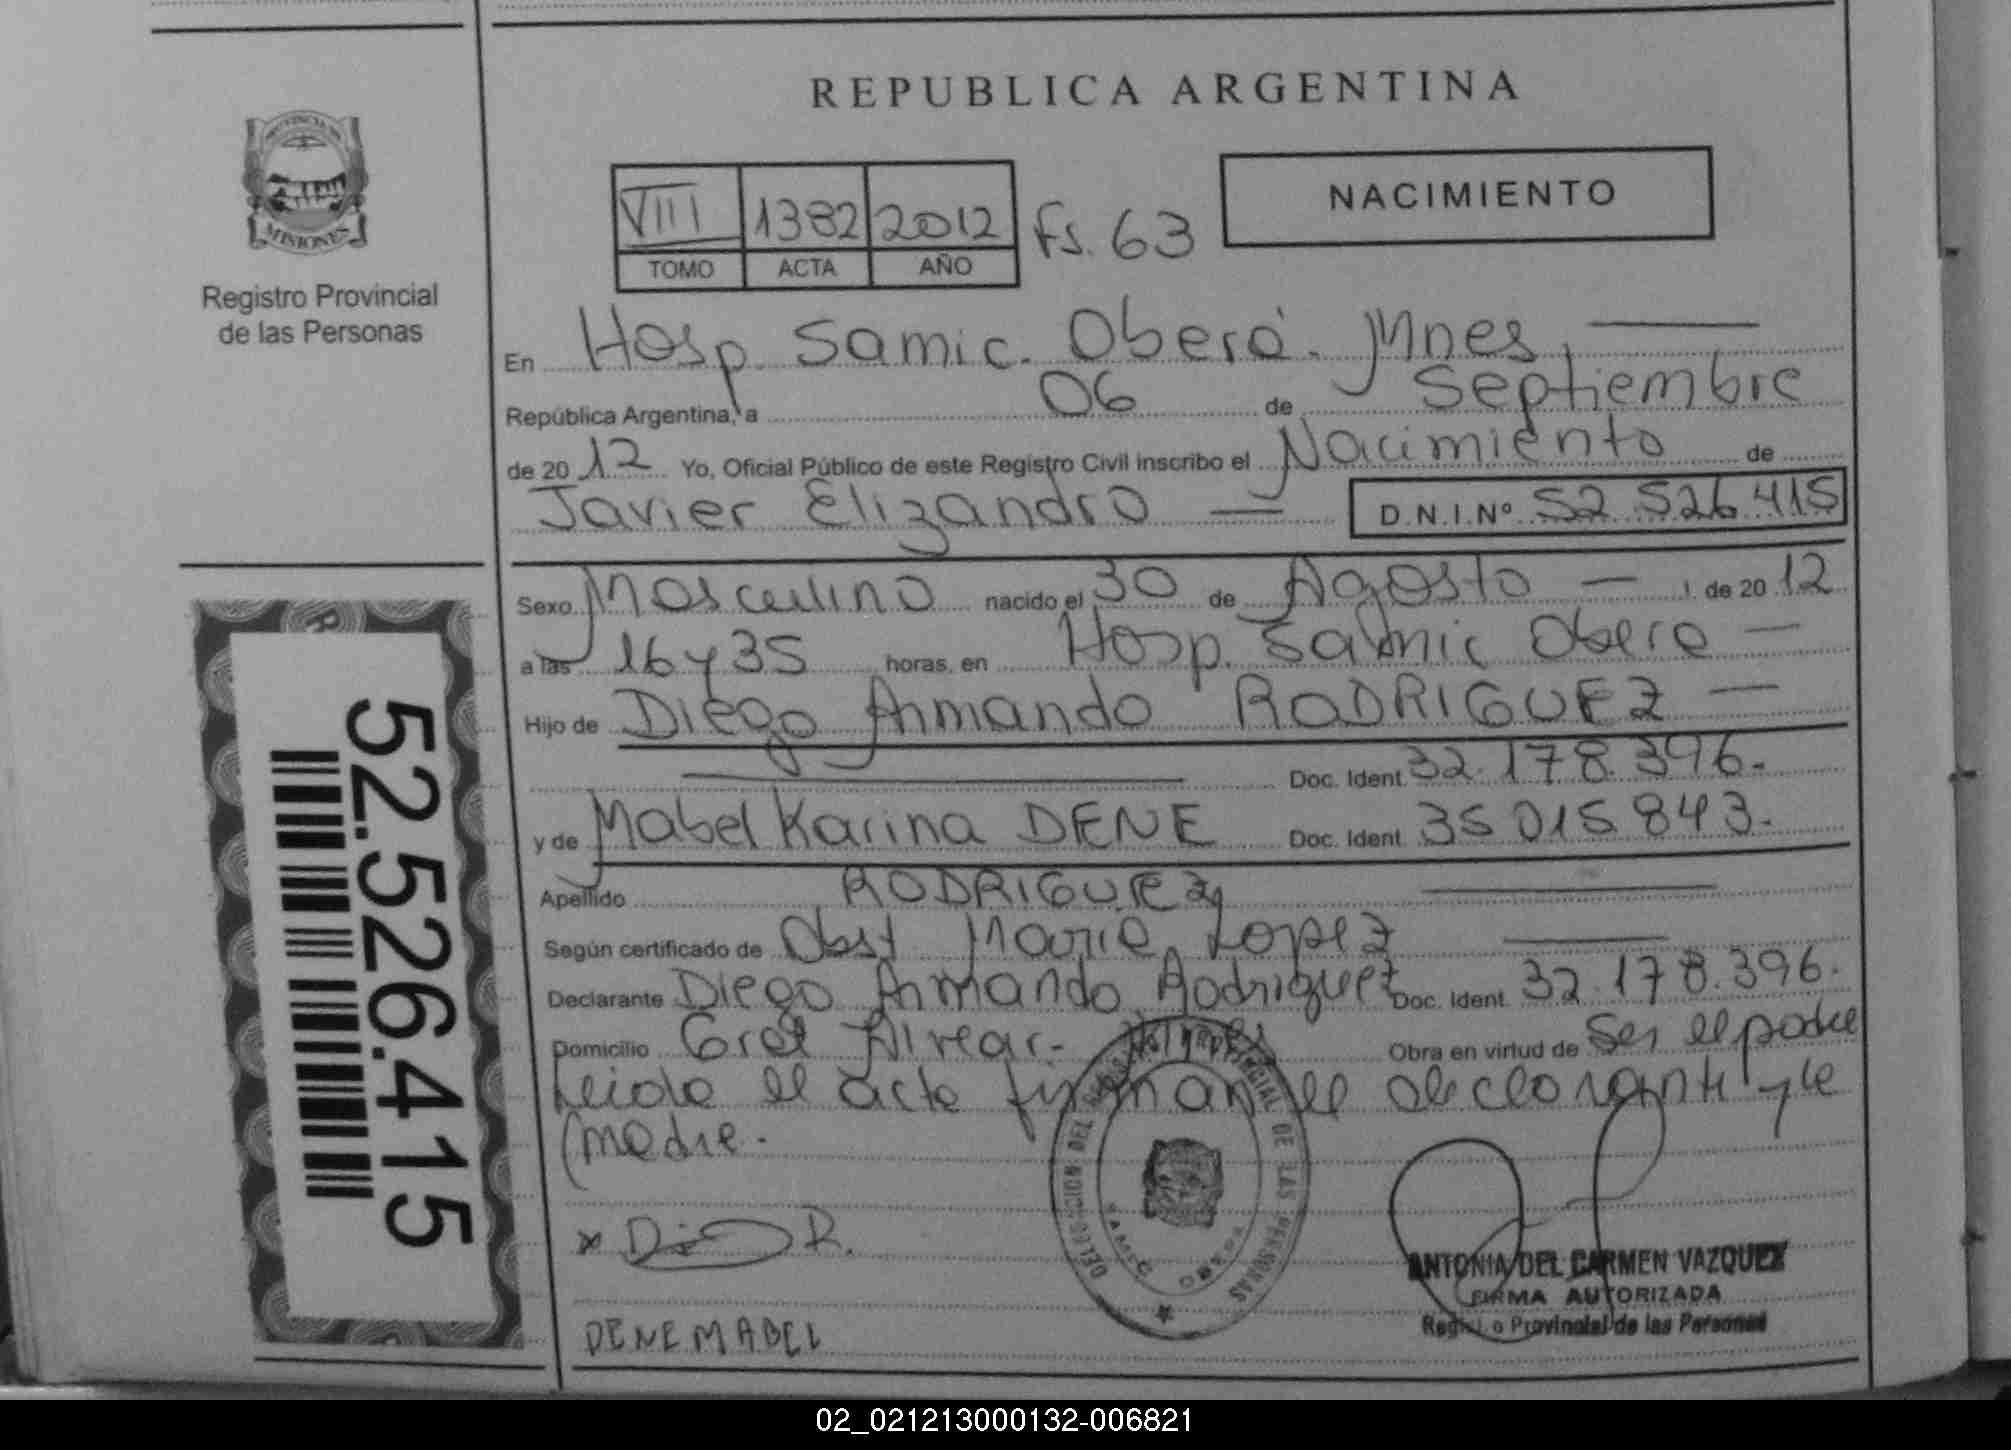 REPUBLICA ARGENTINA
PROVINCIA DE
MISIONES
Registro Provincial
de las Personas
VIII 1382 2012 Fs. 63
TOMO ACTA AÑO
NACIMIENTO
En Hosp. Samic. Oberá. Mnes
República Argentina, a 06 de Septiembre
de 20 12 Yo, Oficial Público de este Registro Civil inscribo el Nacimiento de
Javier Elizandro D.N.I.Nº 52 526 415
Sexo Masculino nacido el 30 de Agosto de 20 12
a las 16 y 35 horas, en Hosp. Samic Obera
Hijo de Diego Armando RODRIGUEZ
Doc. Ident. 32.178.396.
y de Mabel Karina DENE Doc. Ident. 35 015 843.
Apellido RODRIGUEZ
Según certificado de Obst Maria Lopez
Declarante Diego Armando Rodriguez Doc. Ident. 32.178.396.
Domicilio Gral Alvear. Mnes Obra en virtud de Ser el padre
Leida el acta firman el declarante y la
madre.
52.526.415
DELEGACION DEL REGISTRO PROVINCIAL DE LAS PERSONAS
SAMIC OBERA
x R.
DENE MABEL
ANTONIA DEL CARMEN VAZQUEZ
FIRMA AUTORIZADA
Registro Provincial de las Personas
02_021213000132-006821